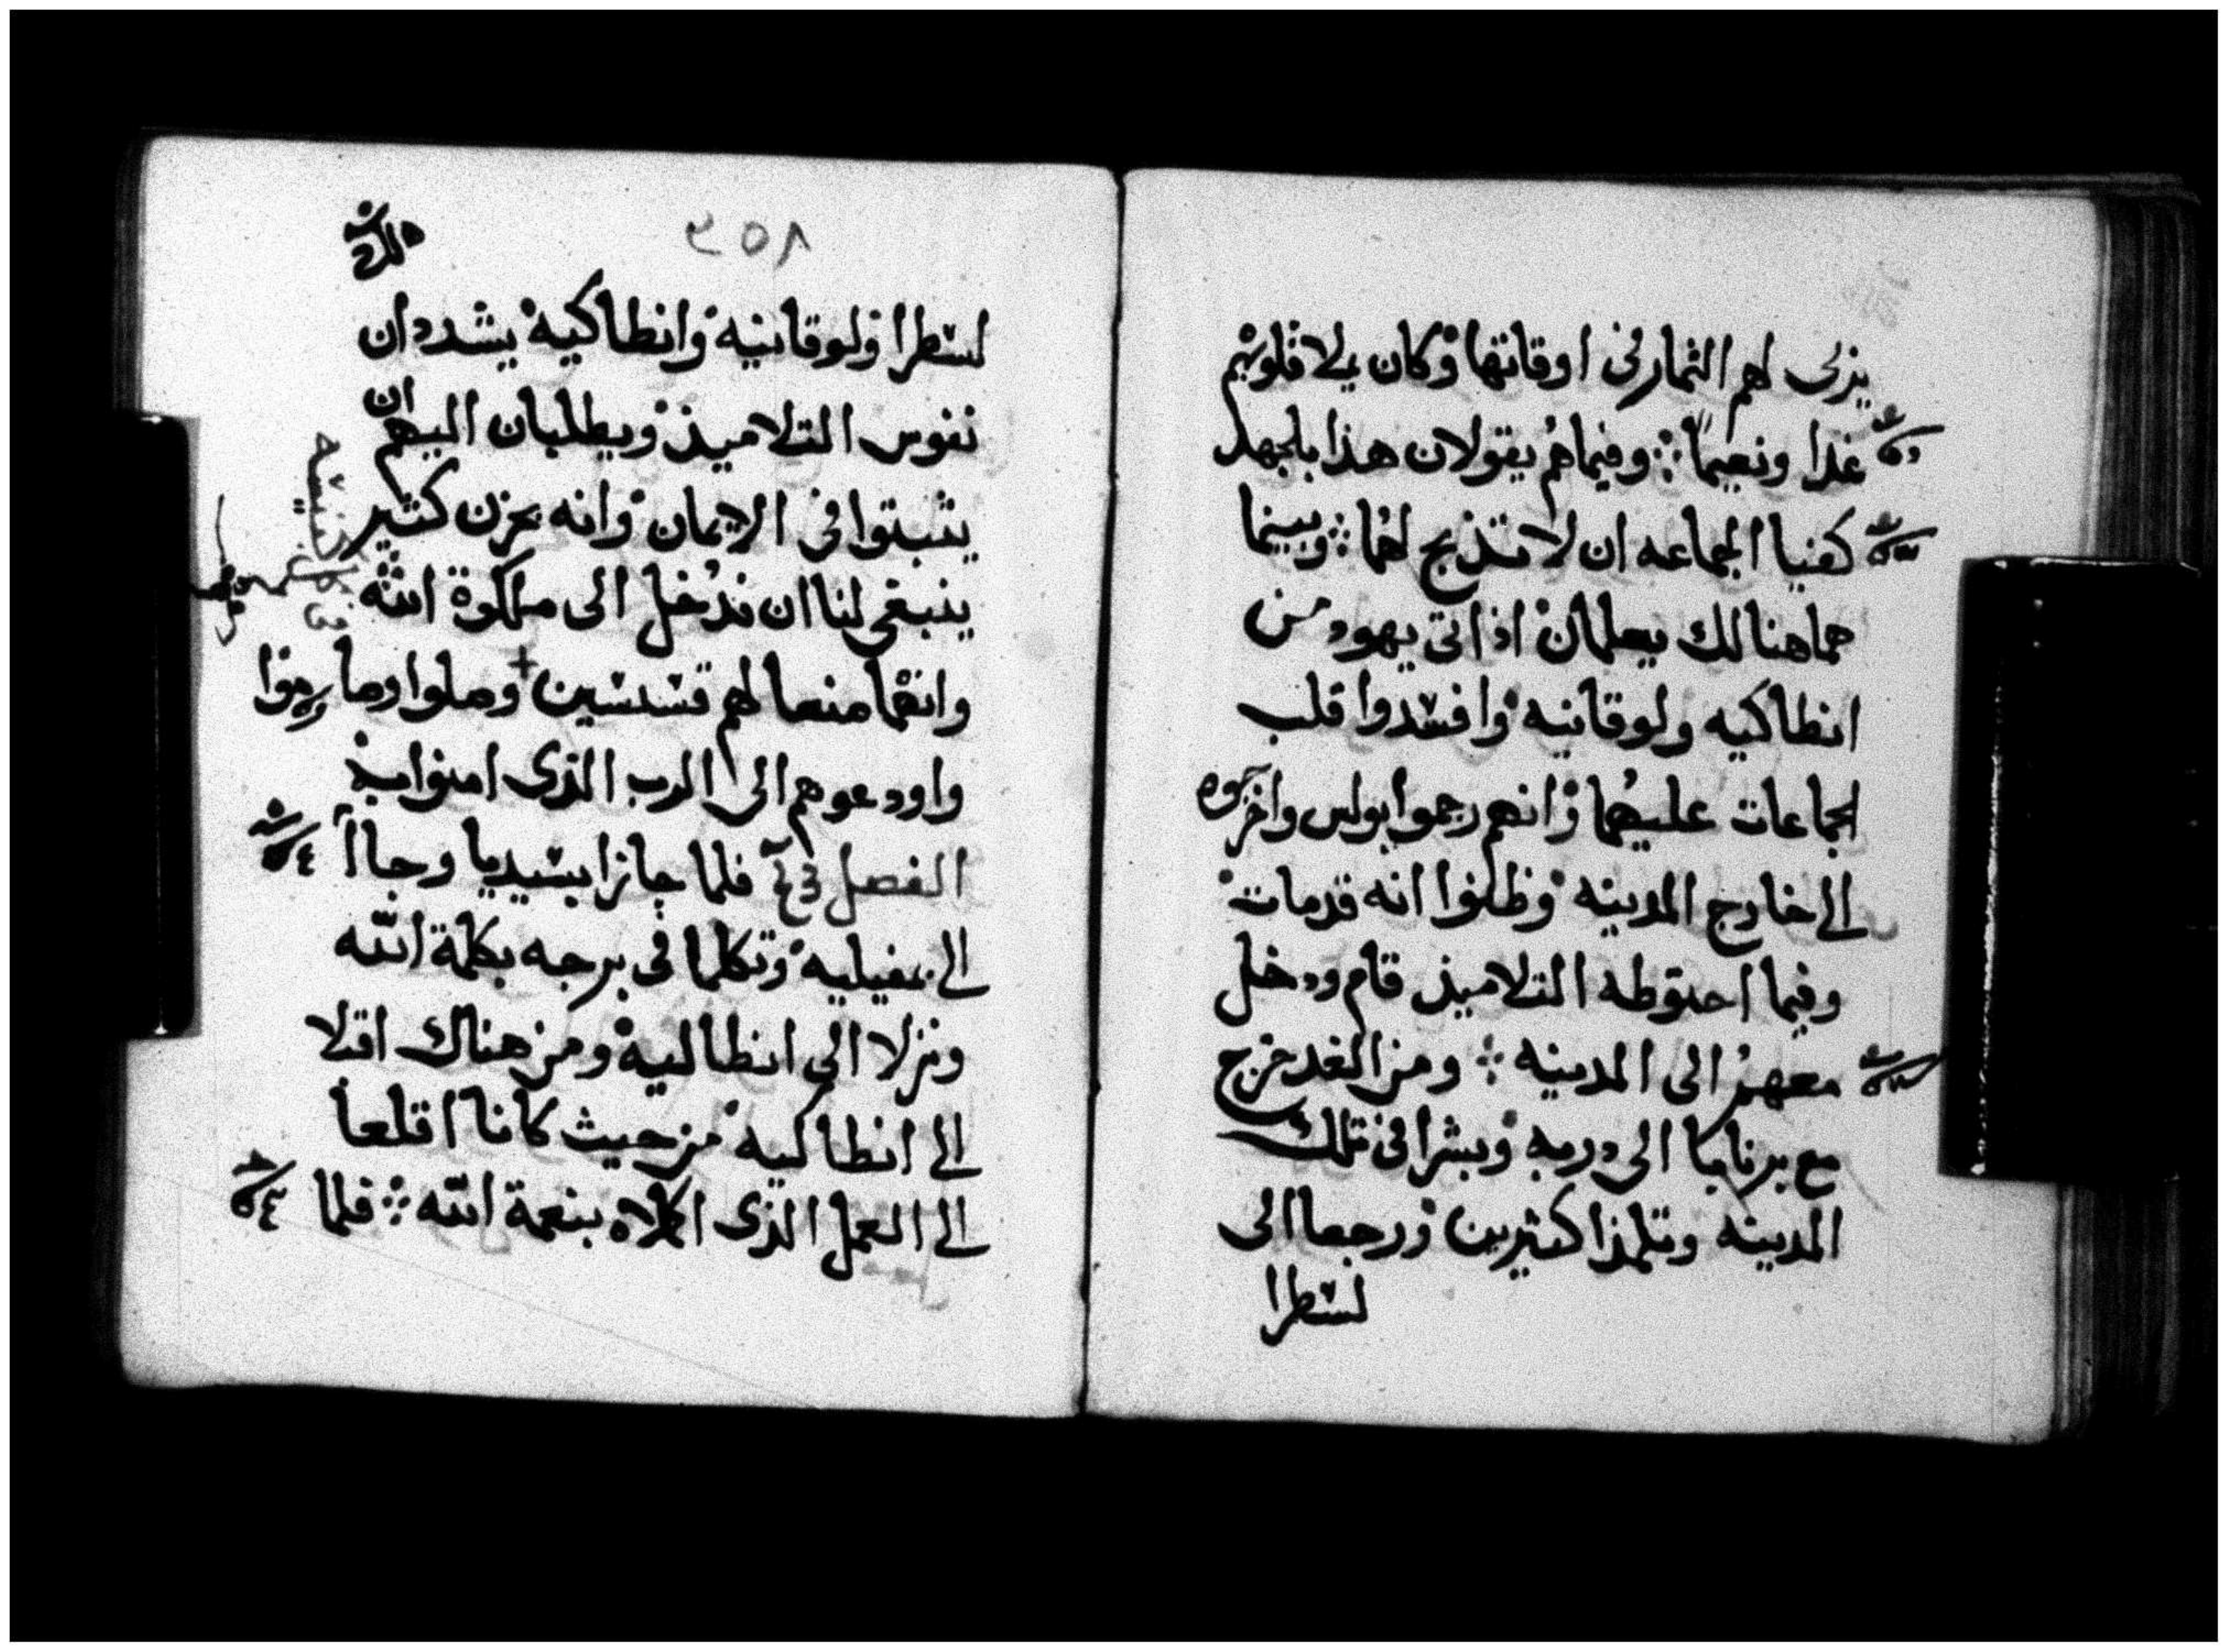 يزلى لهم الثمار فى اوقاتها وكان يملا قلوبهم
غدا ونعيما ፡ وفيما هم يقولان هذا بالجهد
كفيا الجماعه ان لا تذبح لهما ፡ وبينما
هما هنالك يعلمان اذ اتى يهود من
انطاكيه ولوقانيه وافسدوا قلب
الجماعات عليهما وانهم رجموا بولس واخرجوه
الى خارج المدينه وظنوا انه قد مات
وفيما احتوطه التلاميذ قام ودخل
معهم الى المدينه ፡ ومن الغد خرج
مع برنابا الى دربه وبشرا فى تلك
المدينه وتلمذا كثيرين ورجعا الى
لسطرا
٣٥٨
لسطرا ولوقانيه وانطاكيه يشددان
نفوس التلاميذ ويطلبان اليهم ان
يثبتوا فى الايمان وانه بحزن كثير
ينبغى لنا ان ندخل الى ملكوة الله
وانهما منعا لهم قسسين وصلوا وصاموا
واودعوهم الى الرب الذى امنوا به
الفصل فلما جازا بسيديا وجاا
الى بمفيليه وتكلما فى برجه بكلمة الله
ونزلا الى انطاليه ومن هناك اقلا
الى انطاليه من حيث كانا اقلعا
الى العمل الذى اكملاه بنعمة الله ፡ فلما